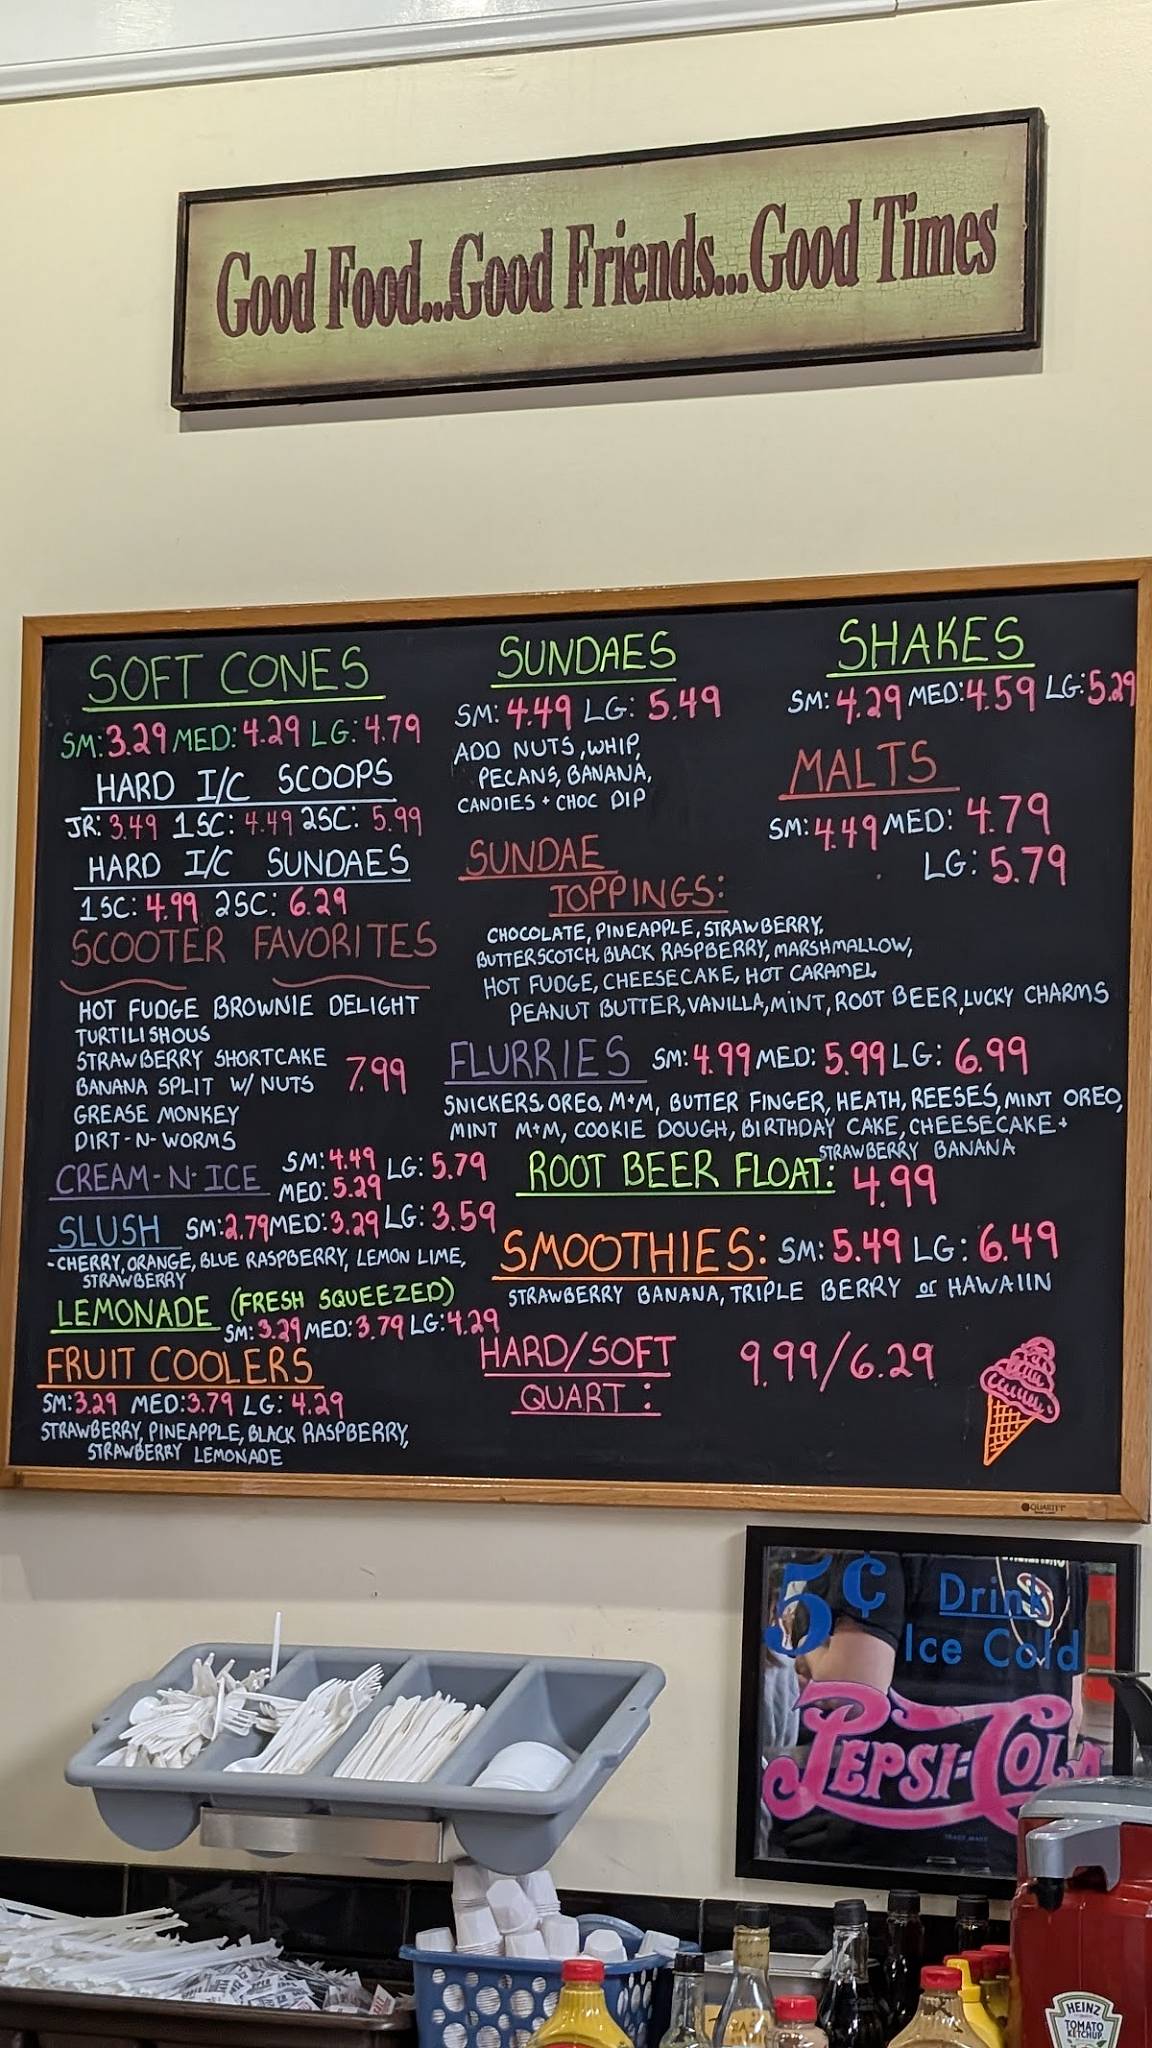 Good Food...Good Friends...Good Times
SOFT CONES
SM: 3.29 MED: 4.29 LG: 4.79
HARD I/C SCOOPS
JR: 3.49 1SC: 4.49 2SC: 5.99
HARD I/C SUNDAES
1SC: 4.99 2SC: 6.29
SCOOTER FAVORITES
HOT FUDGE BROWNIE DELIGHT
TURTILISHOUS
STRAWBERRY SHORTCAKE
BANANA SPLIT W/ NUTS 7.99
GREASE MONKEY
DIRT-N-WORMS
CREAM-N-ICE SM: 4.49 LG: 5.79
MED: 5.29
SLUSH SM: 2.79 MED: 3.29 LG: 3.59
-CHERRY, ORANGE, BLUE RASPBERRY, LEMON LIME,
STRAWBERRY
LEMONADE (FRESH SQUEEZED)
SM: 3.29 MED: 3.79 LG: 4.29
FRUIT COOLERS
SM: 3.29 MED: 3.79 LG: 4.29
STRAWBERRY, PINEAPPLE, BLACK RASPBERRY,
STRAWBERRY LEMONADE
SUNDAES
SM: 4.49 LG: 5.49
ADD NUTS, WHIP,
PECANS, BANANA,
CANDIES + CHOC DIP
SHAKES
SM: 4.29 MED: 4.59 LG: 5.29
MALTS
SM: 4.49 MED: 4.79
LG: 5.79
SUNDAE
TOPPINGS:
CHOCOLATE, PINEAPPLE, STRAWBERRY,
BUTTERSCOTCH, BLACK RASPBERRY, MARSHMALLOW,
HOT FUDGE, CHEESECAKE, HOT CARAMEL
PEANUT BUTTER, VANILLA, MINT, ROOT BEER, LUCKY CHARMS
FLURRIES SM: 4.99 MED: 5.99 LG: 6.99
SNICKERS, OREO, M+M, BUTTER FINGER, HEATH, REESES, MINT OREO,
MINT M+M, COOKIE DOUGH, BIRTHDAY CAKE, CHEESECAKE +
STRAWBERRY BANANA
ROOT BEER FLOAT: 4.99
SMOOTHIES: SM: 5.49 LG: 6.49
STRAWBERRY BANANA, TRIPLE BERRY or HAWAIIN
HARD/SOFT 9.99/6.29
QUART:
QUARTET
5¢ Drink
Ice Cold
PEPSI=COLA
HEINZ
TOMATO
KETCHUP